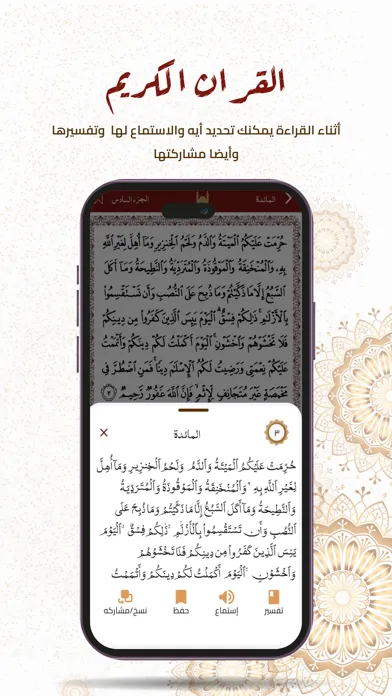 القران الكريم
أثناء القراءة يمكنك تحديد أيه والاستماع لها وتفسيرها
وأيضا مشاركتها
المائدة
الجزء السادس
حُرِّمَتْ عَلَيْكُمُ ٱلْمَيْتَةُ وَٱلدَّمُ وَلَحْمُ ٱلْخِنزِيرِ وَمَآ أُهِلَّ لِغَيْرِ ٱللَّهِ
بِهِۦ وَٱلْمُنْخَنِقَةُ وَٱلْمَوْقُوذَةُ وَٱلْمُتَرَدِّيَةُ وَٱلنَّطِيحَةُ وَمَآ أَكَلَ
ٱلسَّبُعُ إِلَّا مَا ذَكَّيْتُمْ وَمَا ذُبِحَ عَلَى ٱلنُّصُبِ وَأَن تَسْتَقْسِمُوا۟
بِٱلْأَزْلَٰمِ ۚ ذَٰلِكُمْ فِسْقٌ ۗ ٱلْيَوْمَ يَئِسَ ٱلَّذِينَ كَفَرُوا۟ مِن دِينِكُمْ
فَلَا تَخْشَوْهُمْ وَٱخْشَوْنِ ۚ ٱلْيَوْمَ أَكْمَلْتُ لَكُمْ دِينَكُمْ وَأَتْمَمْتُ
عَلَيْكُمْ نِعْمَتِى وَرَضِيتُ لَكُمُ ٱلْإِسْلَٰمَ دِينًا ۚ فَمَنِ ٱضْطُرَّ فِى
مَخْمَصَةٍ غَيْرَ مُتَجَانِفٍ لِّإِثْمٍ ۙ فَإِنَّ ٱللَّهَ غَفُورٌ رَّحِيمٌ ٣
٣
المائدة
حُرِّمَتْ عَلَيْكُمُ ٱلْمَيْتَةُ وَٱلدَّمُ وَلَحْمُ ٱلْخِنزِيرِ وَمَآ أُهِلَّ
لِغَيْرِ ٱللَّهِ بِهِۦ وَٱلْمُنْخَنِقَةُ وَٱلْمَوْقُوذَةُ وَٱلْمُتَرَدِّيَةُ
وَٱلنَّطِيحَةُ وَمَآ أَكَلَ ٱلسَّبُعُ إِلَّا مَا ذَكَّيْتُمْ وَمَا ذُبِحَ عَلَى
ٱلنُّصُبِ وَأَن تَسْتَقْسِمُوا۟ بِٱلْأَزْلَٰمِ ۚ ذَٰلِكُمْ فِسْقٌ ۗ ٱلْيَوْمَ
يَئِسَ ٱلَّذِينَ كَفَرُوا۟ مِن دِينِكُمْ فَلَا تَخْشَوْهُمْ
وَٱخْشَوْنِ ۚ ٱلْيَوْمَ أَكْمَلْتُ لَكُمْ دِينَكُمْ وَأَتْمَمْتُ
تفسير
إستماع
حفظ
نسخ/مشاركه